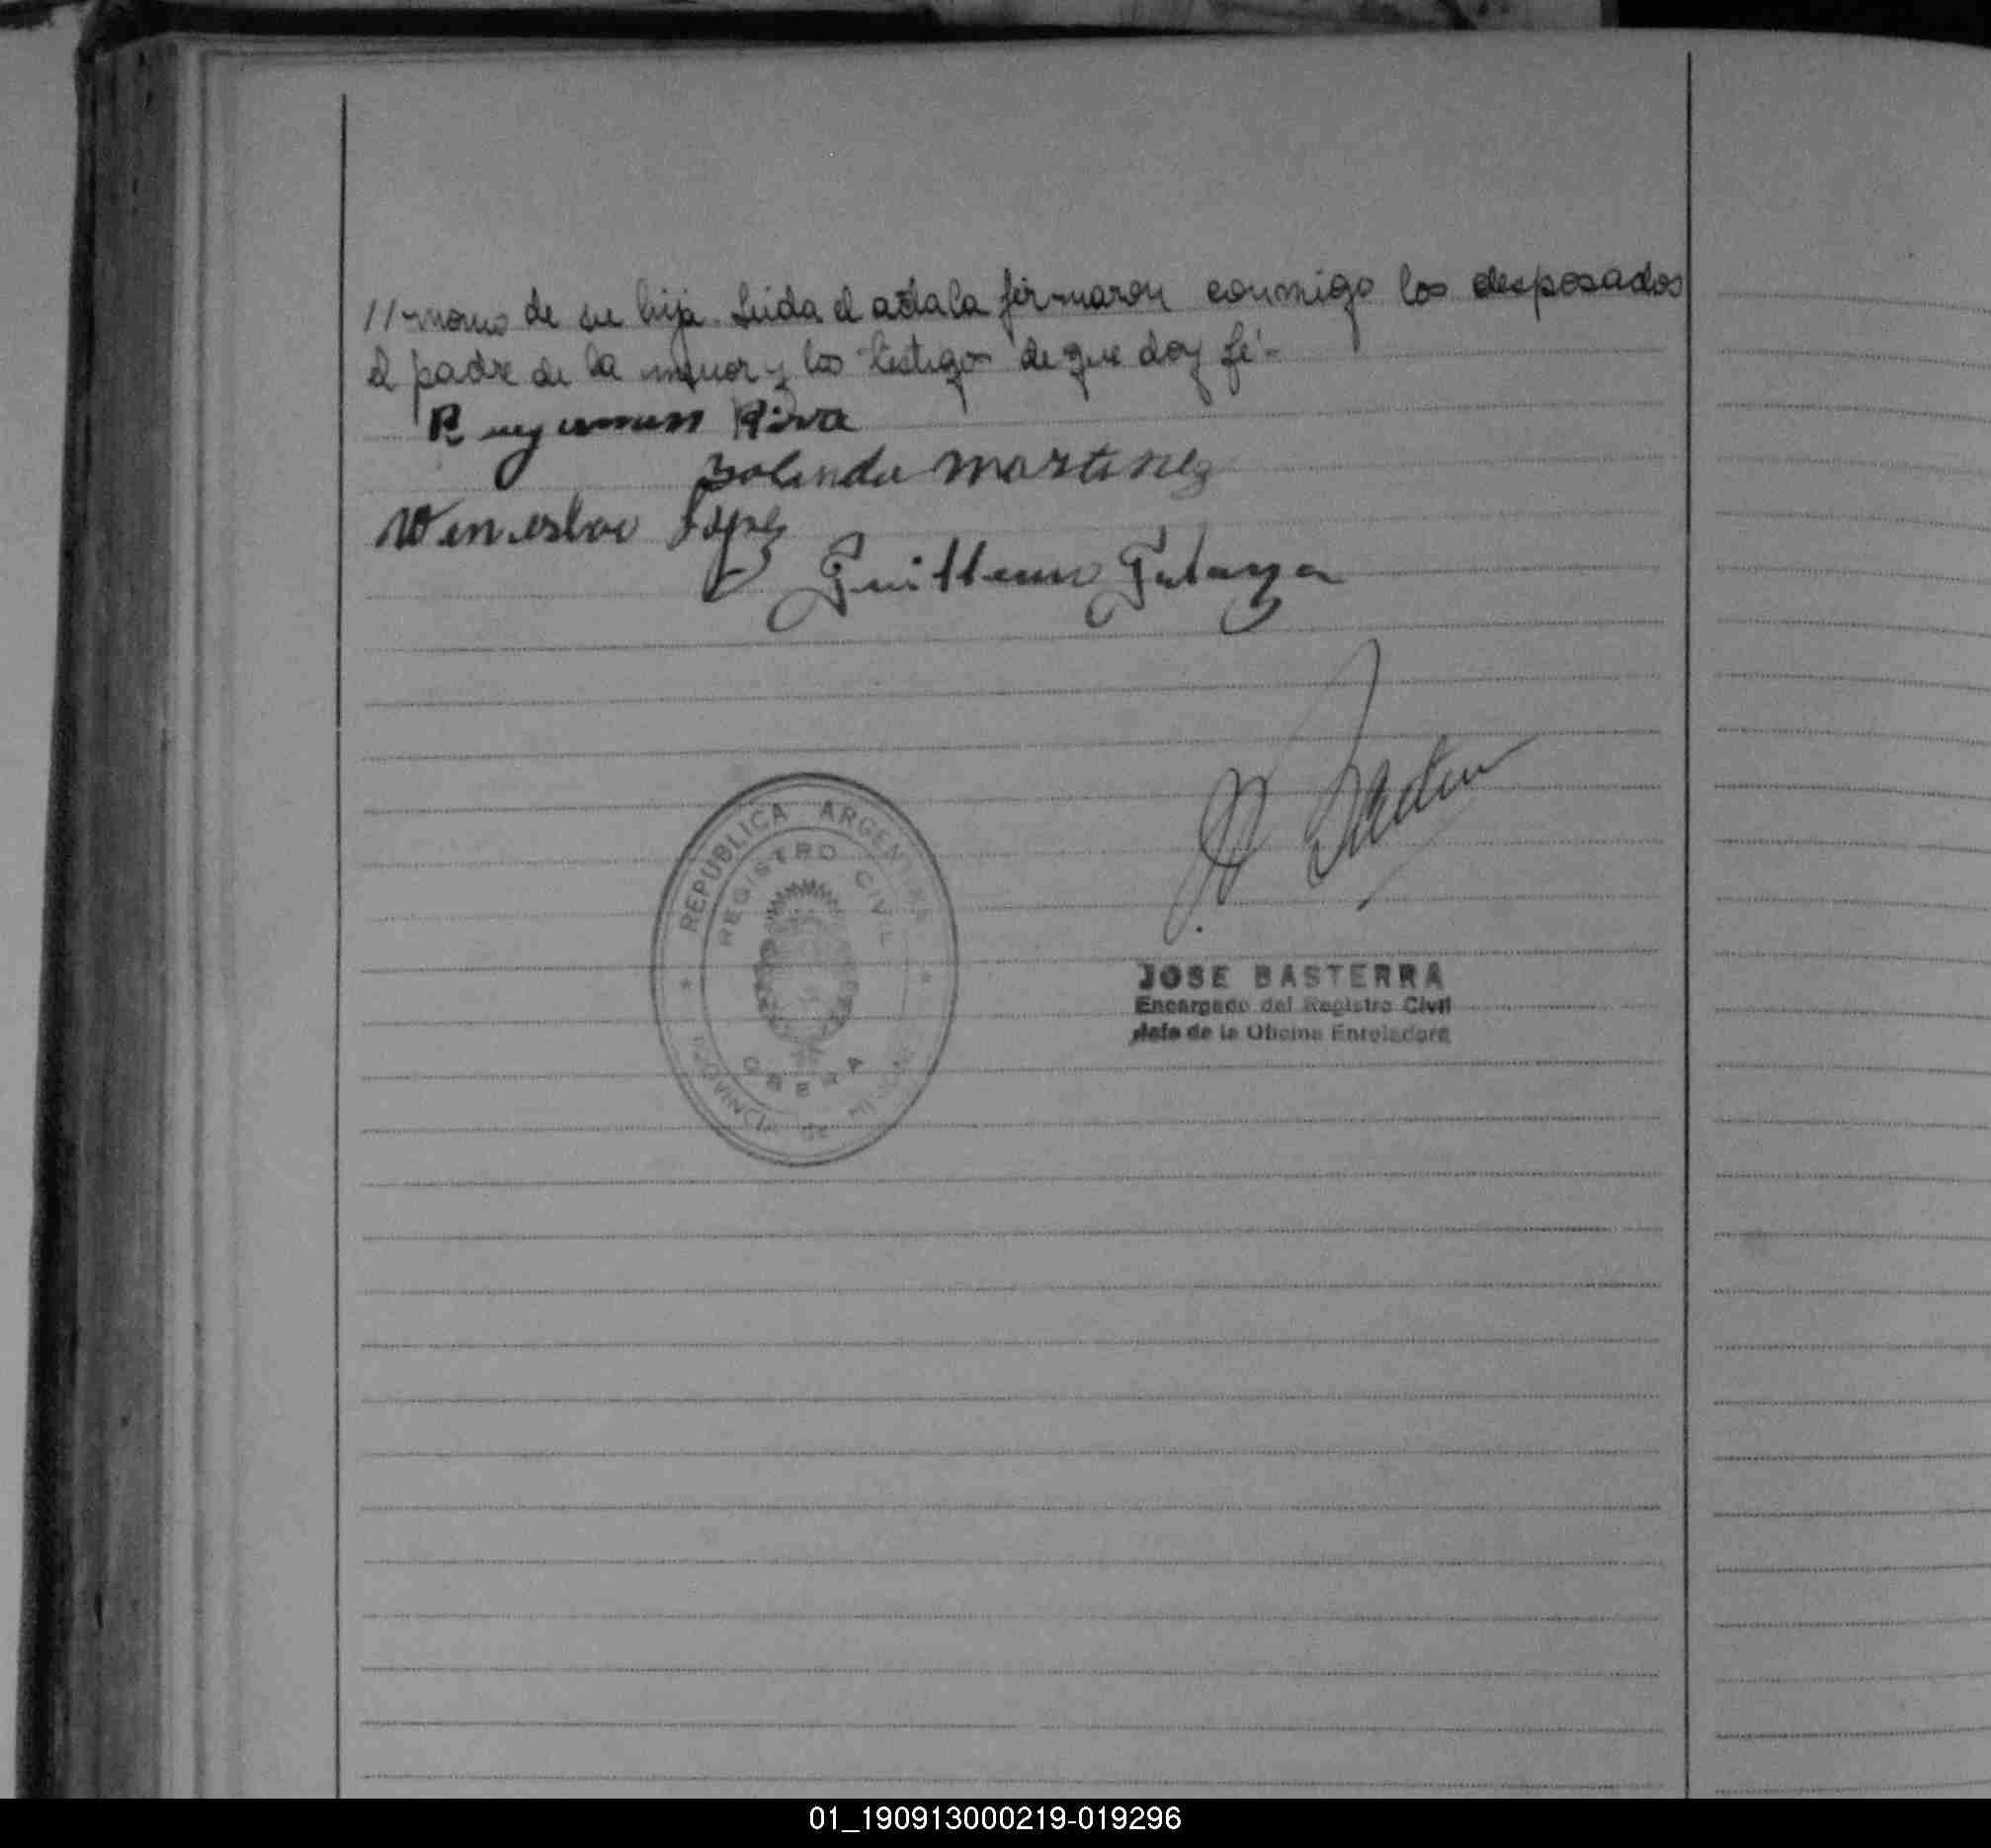 de su hija. Leida el acta la firmaron conmigo los desposados
el padre de la menor y los testigos de que doy fé -
Riva
Martinez
Wenceslao López
Guillermo
REPUBLICA ARGENTINA
REGISTRO CIVIL
OBERA
PROVINCIA DE MISIONES
JOSE BASTERRA
Encargado del Registro Civil
Jefe de la Oficina Enroladora
01_190913000219-019296